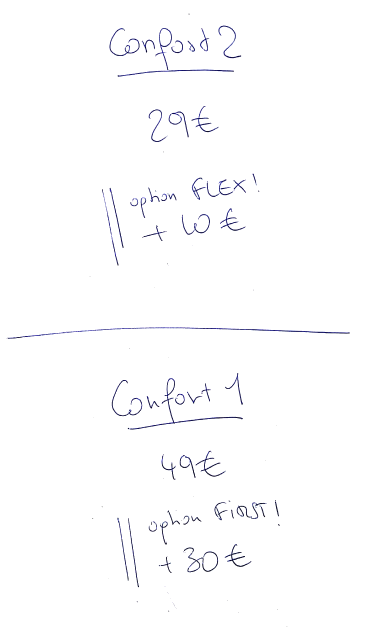 Confort 2
29€
option FLEX!
+ 10 €
Confort 1
49€
option FIRST!
+ 30 €